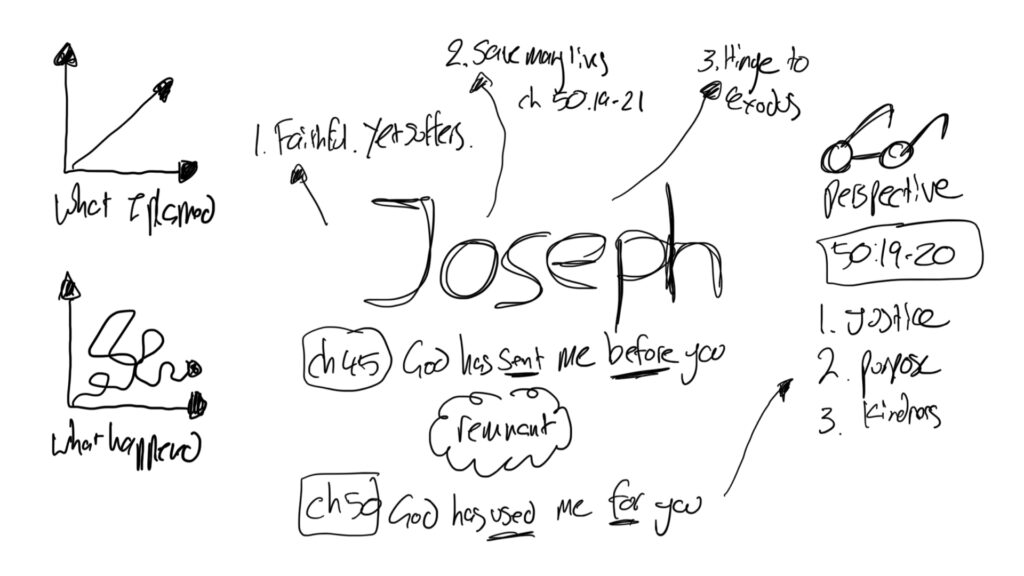 What I planned
What happened
1. Faithful. Yet suffers.
2. Save many lives
ch 50:19-21
3. Hinge to
exodus
Joseph
ch 45 God has sent me before you
remnant
ch 50 God has used me for you
Perspective
50:19-20
1. Justice
2. Purpose
3. Kindness